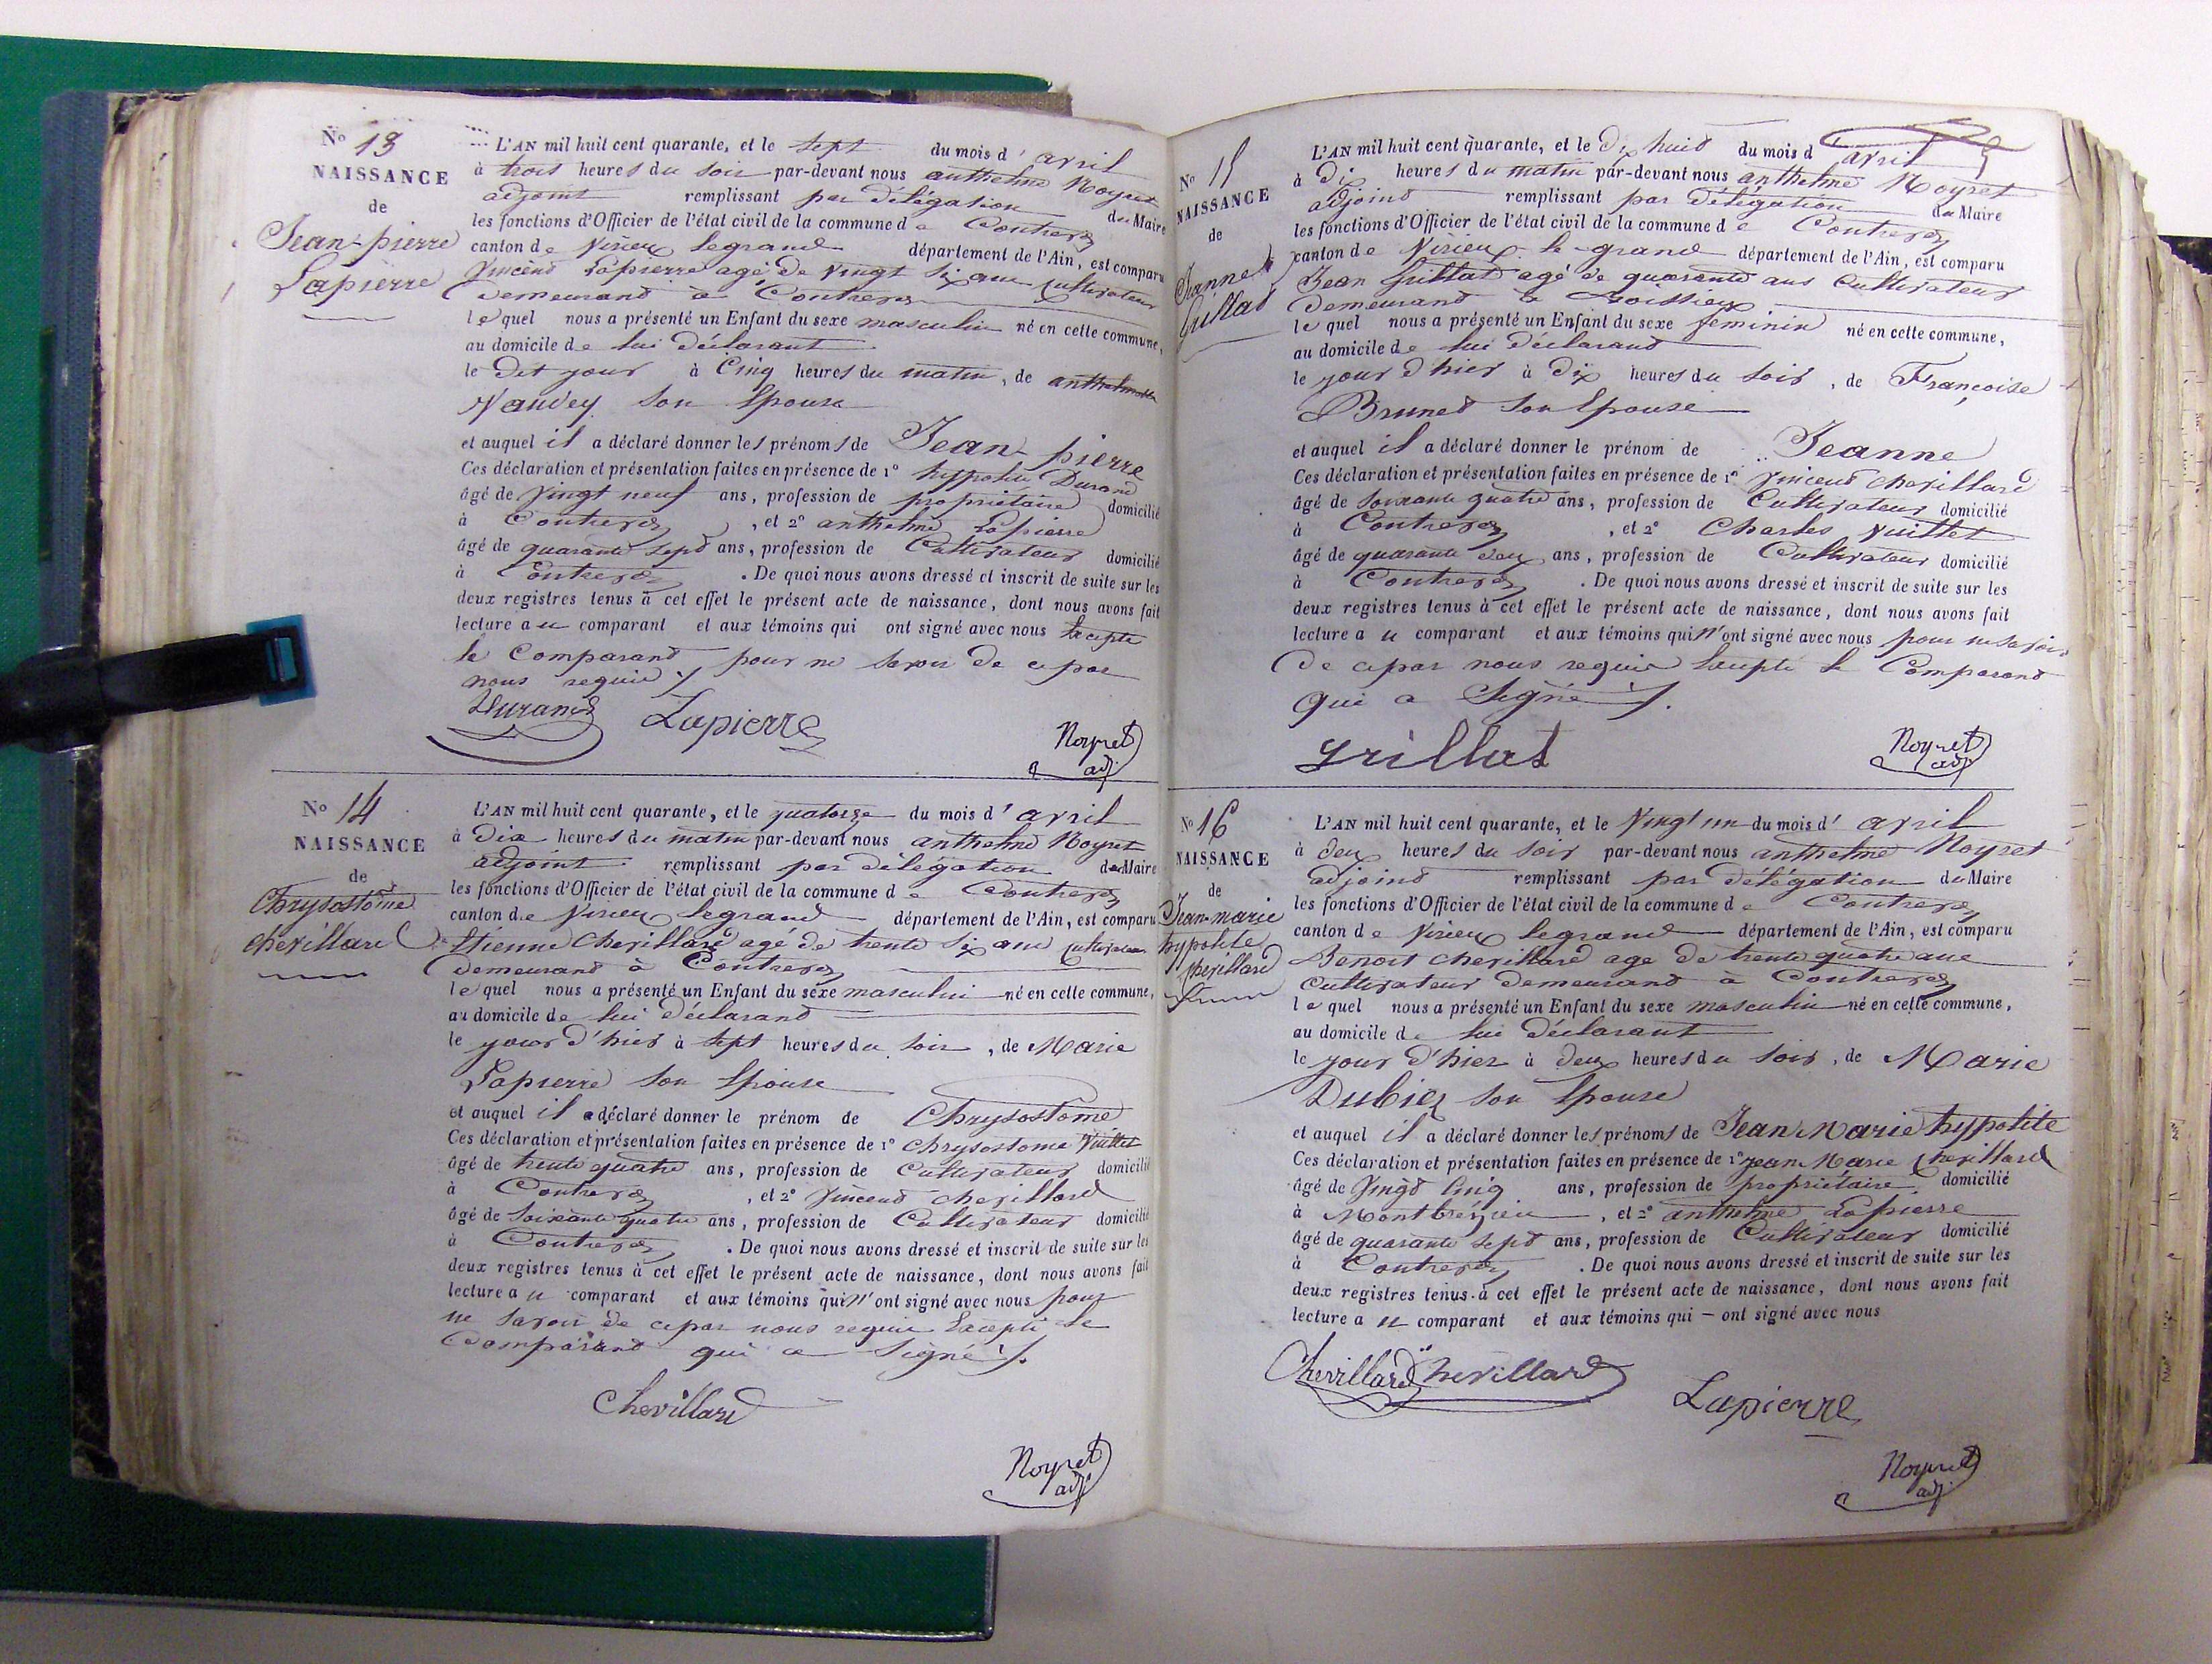 No 13
NAISSANCE
de
Jean-pierre
Lapierre
L'AN mil huit cent quarante, et le sept du mois d'avril
à trois heures du soir par-devant nous anthelme Noyret
adjoint remplissant par délégation du Maire
les fonctions d'Officier de l'état civil de la commune de Contrevoz
canton de Virieu legrand département de l'Ain, est comparu
Vincend Lapierre agé de vingt six ans Cultivateur
demeurand à Contrevoz
lequel nous a présenté un Enfant du sexe masculin né en cette commune,
au domicile de lui déclarant
le dit jour à Cinq heures du matin, de
son Epouse
et auquel il a déclaré donner les prénoms de Jean-pierre
Ces déclaration et présentation faites en présence de 1º hyppolite Durand
âgé de vingt neuf ans, profession de propriétaire domicilié
à Contrevoz, et 2º anthelme Lapierre
âgé de quarante sept ans, profession de Cultivateur domicilié
à Contrevoz. De quoi nous avons dressé et inscrit de suite sur les
deux registres tenus à cet effet le présent acte de naissance, dont nous avons fait
lecture au comparant et aux témoins qui ont signé avec nous Excepté
le Comparand pour ne savoir de ce par
nous requis
Durand Lapierre
Noyret
adj
No 14
NAISSANCE
de
Chrysostome
chevillard
L'AN mil huit cent quarante, et le quatorze du mois d'avril
à dix heures du matin par-devant nous anthelme Noyret
adjoint remplissant par délégation du Maire
les fonctions d'Officier de l'état civil de la commune de Contrevoz
canton de Virieu legrand département de l'Ain, est comparu
Etienne chevillard agé de trente six ans Cultivateur
demeurand à Contrevoz
lequel nous a présenté un Enfant du sexe masculin né en cette commune,
au domicile de lui déclarand
le jour d'hier à sept heures du soir, de Marie
Lapierre son Epouse
et auquel il a déclaré donner le prénom de Chrysostome
Ces déclaration et présentation faites en présence de 1º chrysostome Vuillet
âgé de trente quatre ans, profession de Cultivateur domicilié
à Contrevoz, et 2º Vincend chevillard
âgé de soixante quatre ans, profession de Cultivateur domicilié
à Contrevoz. De quoi nous avons dressé et inscrit de suite sur les
deux registres tenus à cet effet le présent acte de naissance, dont nous avons fait
lecture au comparant et aux témoins qui n'ont signé avec nous pour
ne savoir de ce par nous requis Excepté le
Comparand qui a signé
Chevillard
Noyret
adj
No 15
NAISSANCE
de
Jeanne
L'AN mil huit cent quarante, et le dix huit du mois d avril
à dix heures du matin par-devant nous anthelme Noyret
adjoind remplissant par délégation du Maire
les fonctions d'Officier de l'état civil de la commune de Contrevoz
canton de Virieu le-grand département de l'Ain, est comparu
Jean Grillat agé de quarante ans Cultivateur
demeurand à
lequel nous a présenté un Enfant du sexe feminin né en cette commune,
au domicile de lui déclarand
le jour d'hier à dix heures du soir, de Françoise
Brunet son Epouse
et auquel il a déclaré donner le prénom de Jeanne
Ces déclaration et présentation faites en présence de 1º Vincend chevillard
âgé de soixante quatre ans, profession de Cultivateur domicilié
à Contrevoz, et 2º Charles Vuillet
âgé de quarante deux ans, profession de Cultivateur domicilié
à Contrevoz. De quoi nous avons dressé et inscrit de suite sur les
deux registres tenus à cet effet le présent acte de naissance, dont nous avons fait
lecture au comparant et aux témoins qui n'ont signé avec nous pour ne savoir
de ce par nous requis Excepté le Comparand
qui a signé
grillat
Noyret
adj
No 16
NAISSANCE
de
Jean-marie
hyppolite
chevillard
L'AN mil huit cent quarante, et le vingt un du mois d'avril
à deux heures du soir par-devant nous anthelme Noyret
adjoind remplissant par délégation du Maire
les fonctions d'Officier de l'état civil de la commune de Contrevoz
canton de Virieu legrand département de l'Ain, est comparu
Benoit chevillard age de trente quatre ans
Cultivateur demeurand à Contrevoz
lequel nous a présenté un Enfant du sexe masculin né en cette commune,
au domicile de lui déclarant
le jour d'hier à deux heures du soir, de Marie
Dubiez son Epouse
et auquel il a déclaré donner les prénoms de Jean Marie hyppolite
Ces déclaration et présentation faites en présence de 1º Jean Marie chevillard
âgé de vingt cinq ans, profession de propriétaire domicilié
à, et 2º anthelme Lapierre
âgé de quarante sept ans, profession de Cultivateur domicilié
à Contrevoz. De quoi nous avons dressé et inscrit de suite sur les
deux registres tenus à cet effet le présent acte de naissance, dont nous avons fait
lecture au comparant et aux témoins qui – ont signé avec nous
Chevillard Chevillard
Lapierre
Noyret
adj